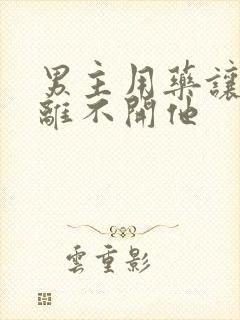 男主用藥讓
離不開他
雲重影